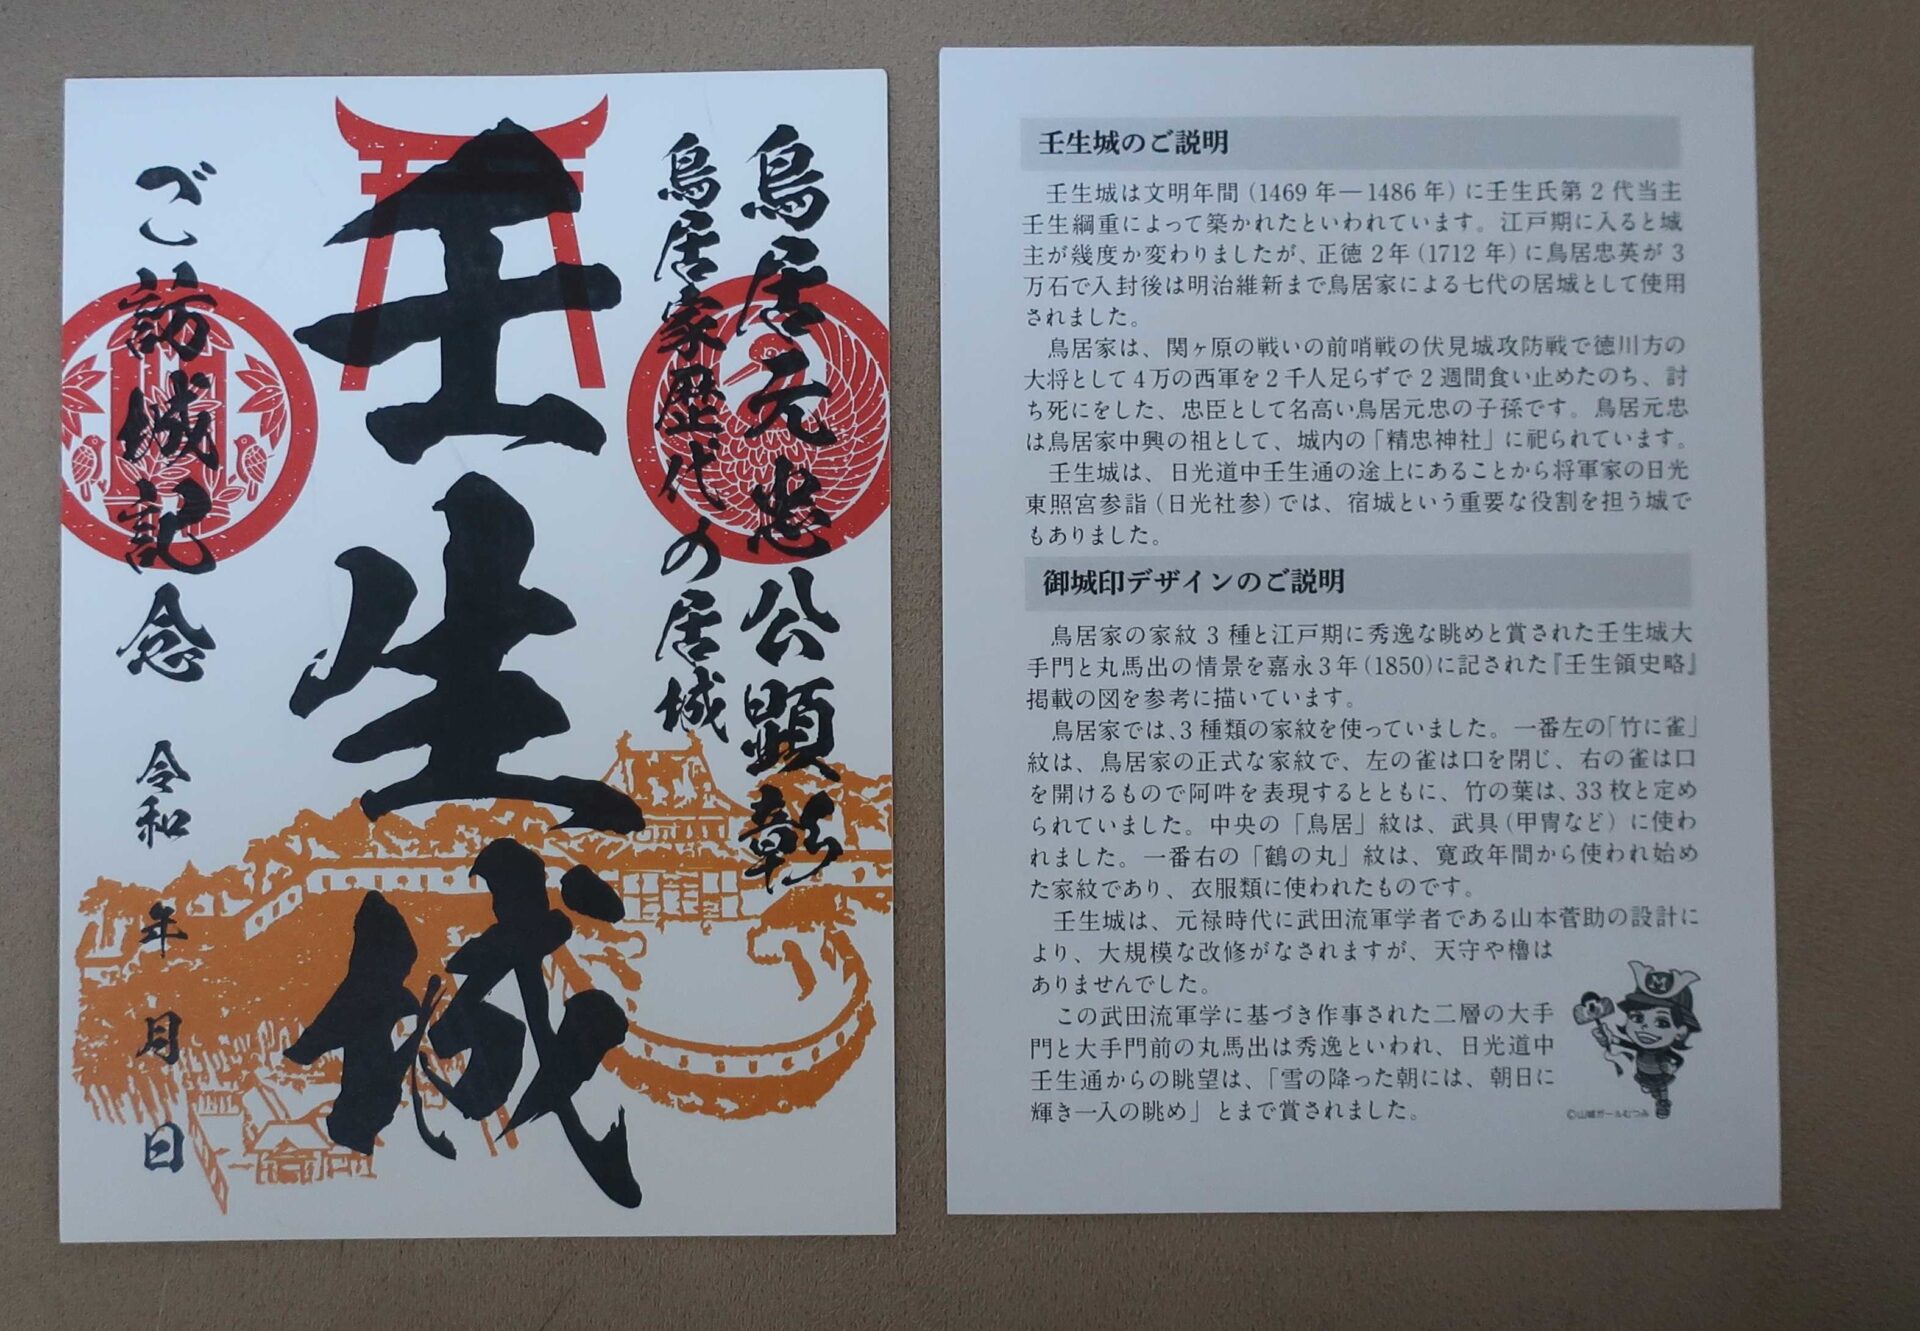 鳥居元忠公顕彰
鳥居家歴代の居城
壬生城
ご訪城記念 令和 年 月 日
壬生城のご説明
壬生城は文明年間(1469年―1486年)に壬生氏第2代当主
壬生綱重によって築かれたといわれています。江戸期に入ると城
主が幾度か変わりましたが、正徳2年(1712年)に鳥居忠英が3
万石で入封後は明治維新まで鳥居家による七代の居城として使用
されました。
鳥居家は、関ヶ原の戦いの前哨戦の伏見城攻防戦で徳川方の
大将として4万の西軍を2千人足らずで2週間食い止めたのち、討
ち死にをした、忠臣として名高い鳥居元忠の子孫です。鳥居元忠
は鳥居家中興の祖として、城内の「精忠神社」に祀られています。
壬生城は、日光道中壬生通の途上にあることから将軍家の日光
東照宮参詣(日光社参)では、宿城という重要な役割を担う城で
もありました。
御城印デザインのご説明
鳥居家の家紋3種と江戸期に秀逸な眺めと賞された壬生城大
手門と丸馬出の情景を嘉永3年(1850)に記された『壬生領史略』
掲載の図を参考に描いています。
鳥居家では、3種類の家紋を使っていました。一番左の「竹に雀」
紋は、鳥居家の正式な家紋で、左の雀は口を閉じ、右の雀は口
を開けるもので阿吽を表現するとともに、竹の葉は、33枚と定め
られていました。中央の「鳥居」紋は、武具(甲冑など)に使わ
れました。一番右の「鶴の丸」紋は、寛政年間から使われ始め
た家紋であり、衣服類に使われたものです。
壬生城は、元禄時代に武田流軍学者である山本菅助の設計に
より、大規模な改修がなされますが、天守や櫓は
ありませんでした。
この武田流軍学に基づき作事された二層の大手
門と大手門前の丸馬出は秀逸といわれ、日光道中
壬生通からの眺望は、「雪の降った朝には、朝日に
輝き一入の眺め」とまで賞されました。
M
©山城ガールむつみ